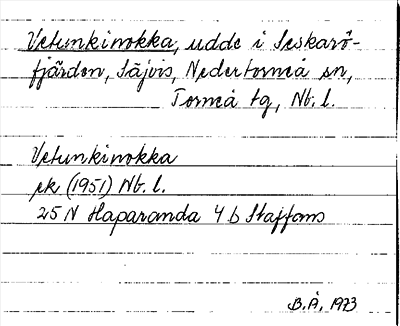 Vetunkinokka, udde i Seskarö-
fjärden, Säjvis, Nedertorneå sn,
Torneå tg, Nb. l.
Vetunkinokka
ek (1951) Nb. l.
25 N Haparanda 4 b Staffans
B.Å, 1973